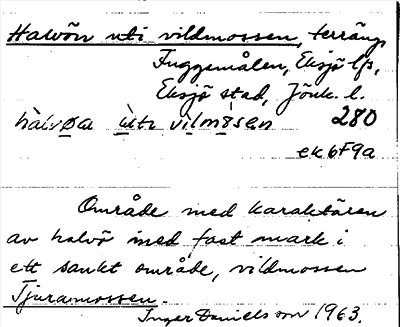 Halvön uti vildmossen, terräng,
Fuggemålen, Eksjö lfs,
Eksjö stad, Jönk. l.
hàlvøa ùti vìlmøsen 280
ek 6F9a
Område med karaktären
av halvö med fast mark i
ett sankt område, vildmossen
Tjuramossen.
Inger Danielsson 1963.